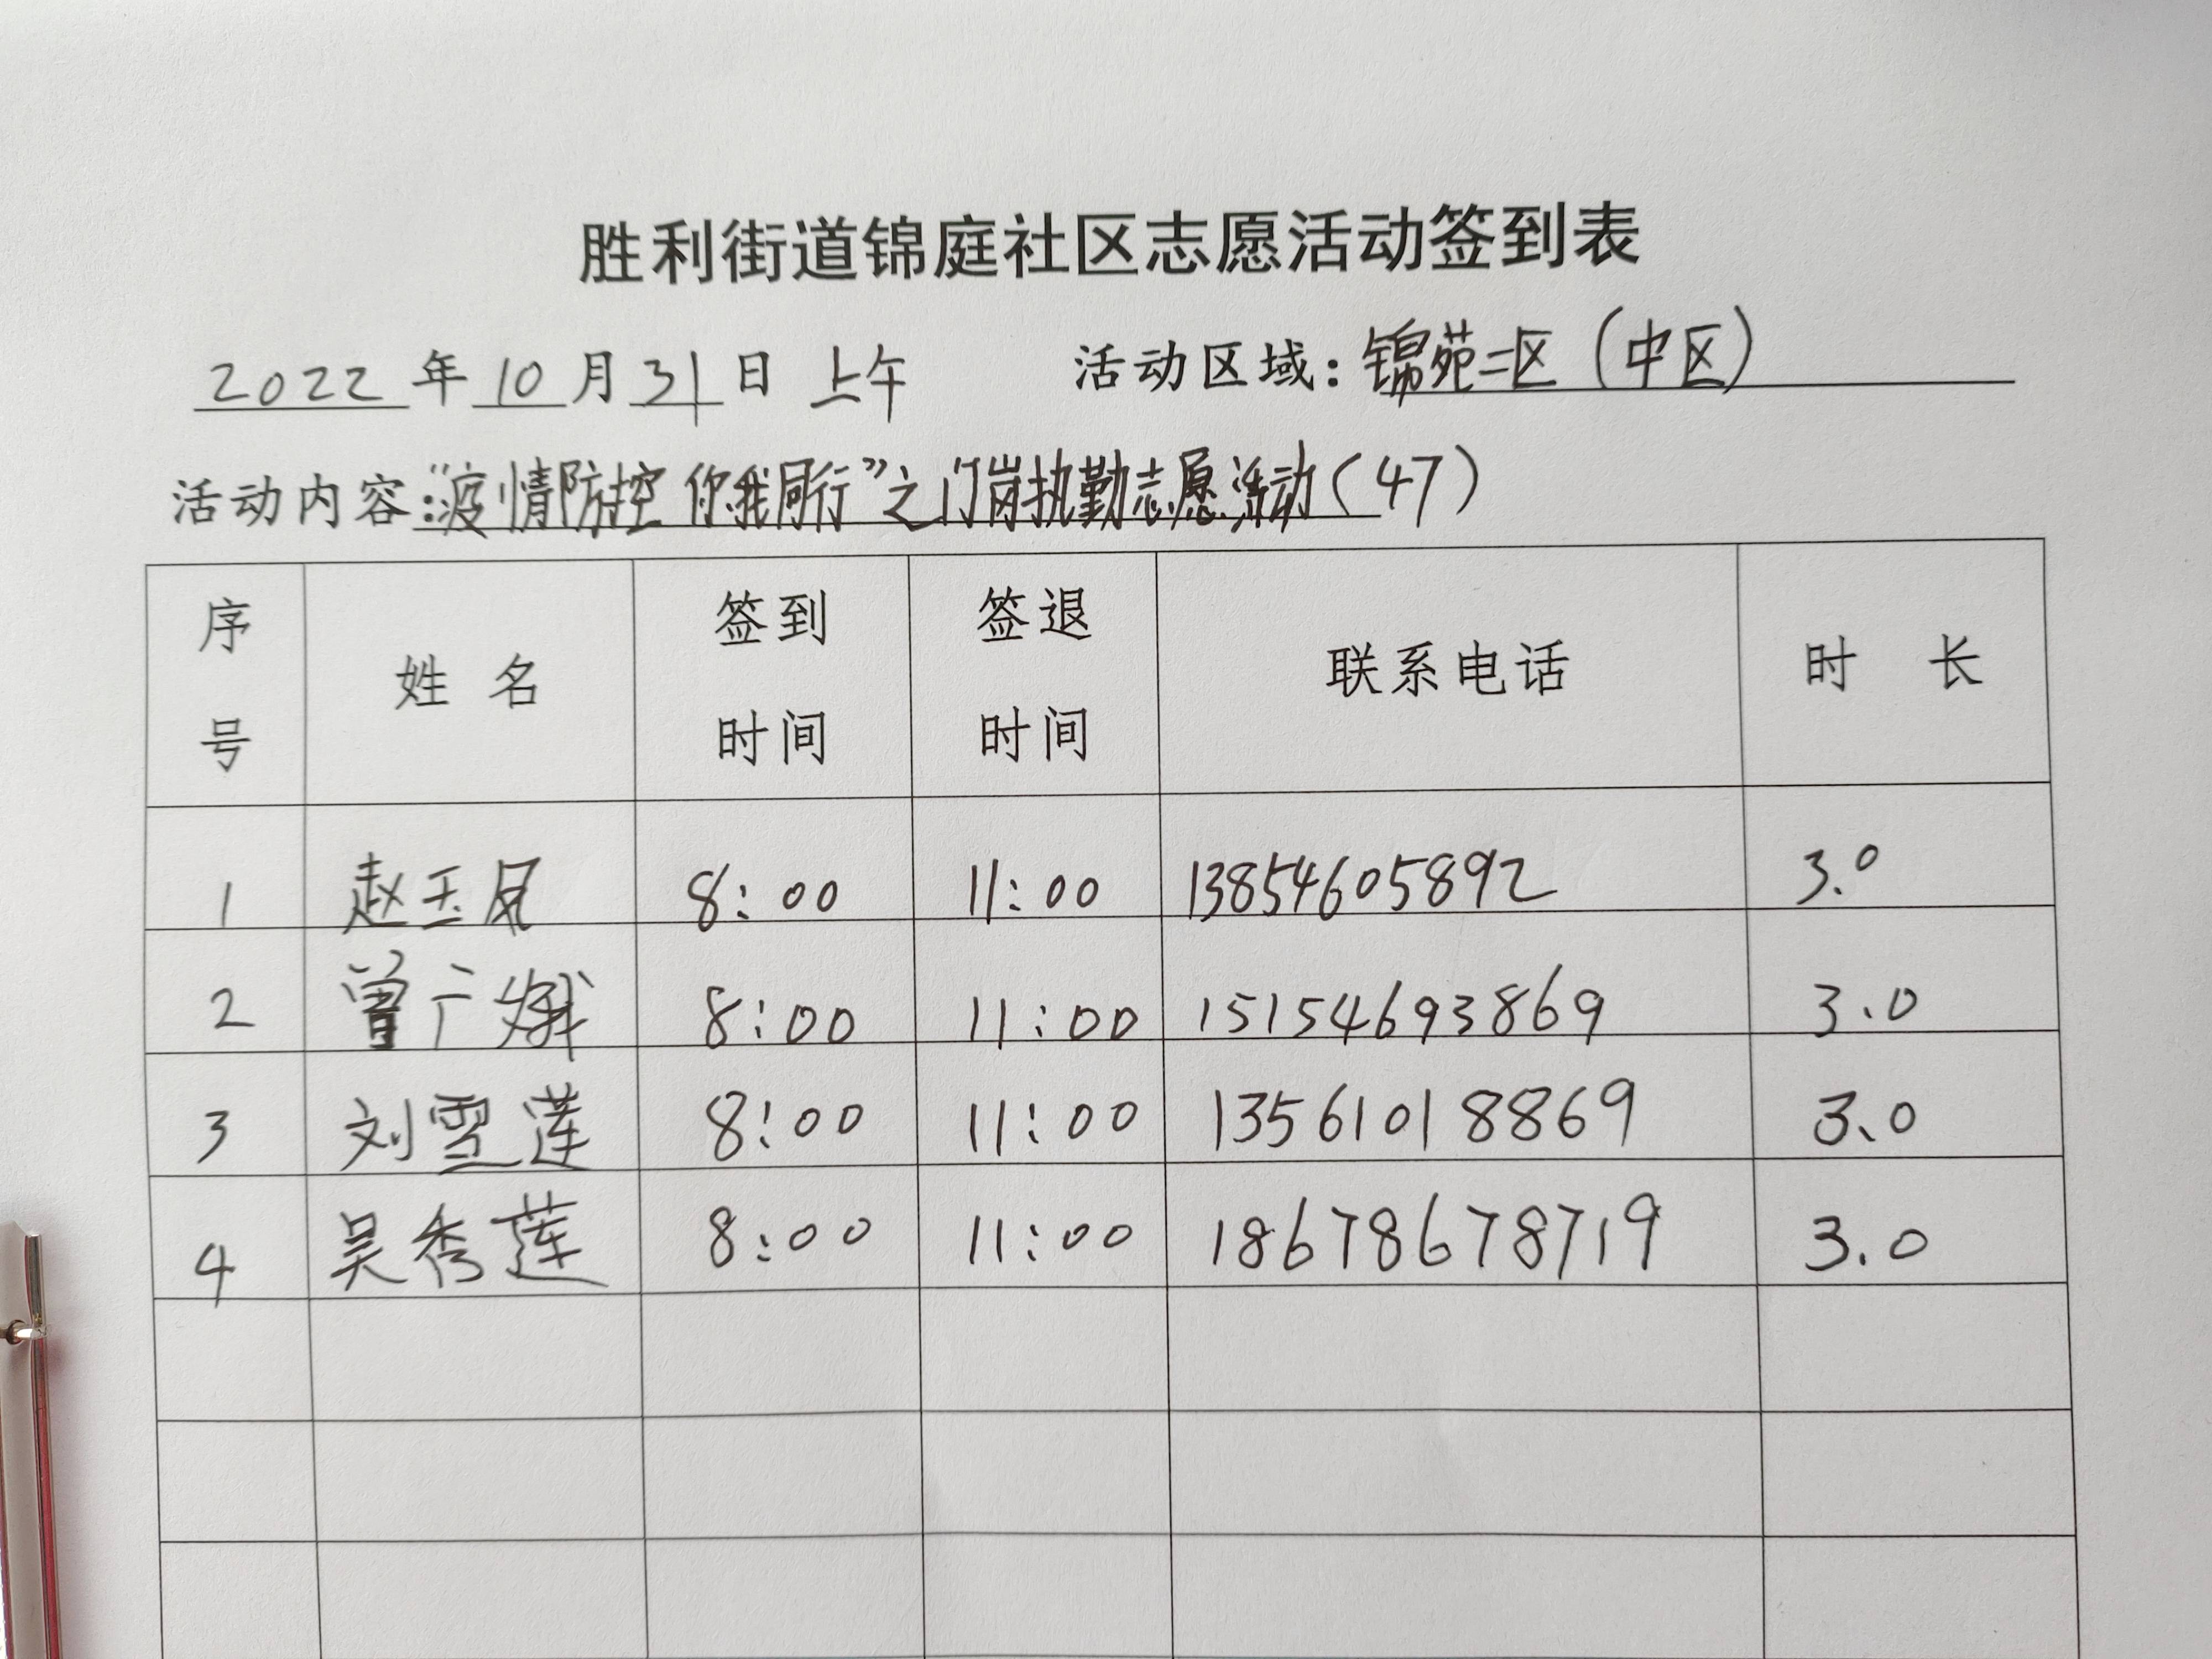 胜利街道锦庭社区志愿活动签到表
2022年10月31日 上午 活动区域：锦苑二区（中区）
活动内容：“疫情防控 你我同行”之门岗执勤志愿活动（47）
序号 姓名 签到时间 签退时间 联系电话 时长
1 赵玉凤 8:00 11:00 13854605892 3.0
2 曾广娥 8:00 11:00 15154693869 3.0
3 刘雪莲 8:00 11:00 13561018869 3.0
4 吴秀莲 8:00 11:00 18678678719 3.0